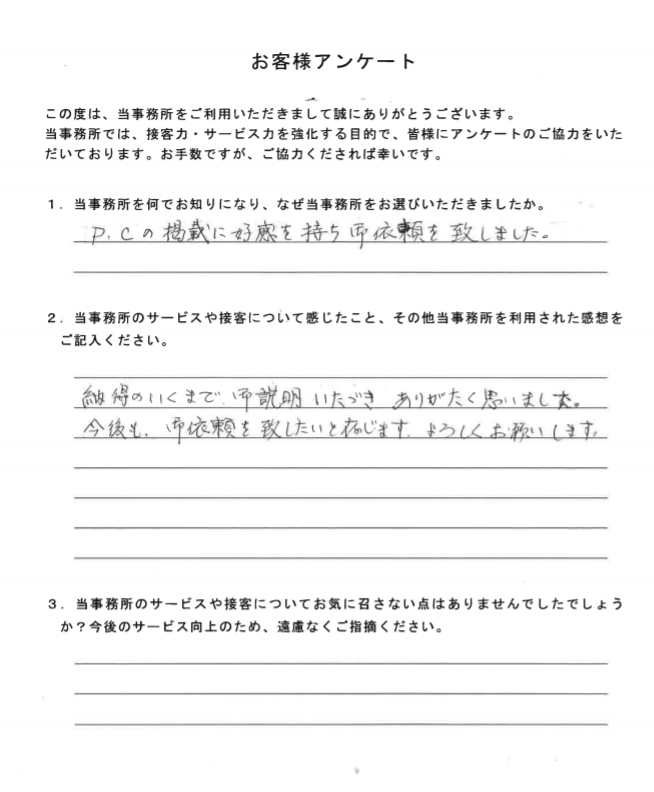 お客様アンケート
この度は、当事務所をご利用いただきまして誠にありがとうございます。
当事務所では、接客力・サービス力を強化する目的で、皆様にアンケートのご協力をいた
だいております。お手数ですが、ご協力くだされば幸いです。
1．当事務所を何でお知りになり、なぜ当事務所をお選びいただきましたか。
P.Cの掲載に好感を持ち御依頼を致しました。
2．当事務所のサービスや接客について感じたこと、その他当事務所を利用された感想を
ご記入ください。
納得のいくまで、御説明いたゞき ありがたく思いました。
今後も、御依頼を致したいと存じます。よろしくお願いします。
3．当事務所のサービスや接客についてお気に召さない点はありませんでしたでしょう
か？今後のサービス向上のため、遠慮なくご指摘ください。